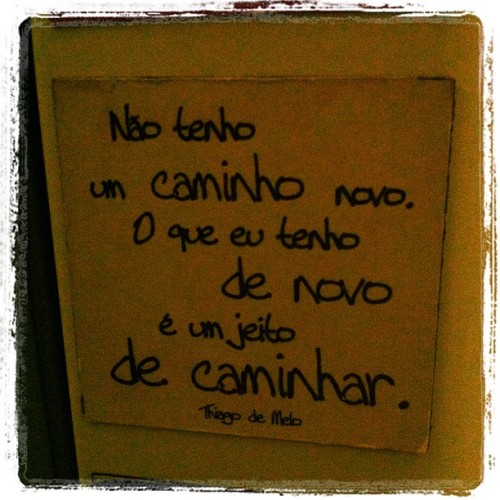 Não tenho
um caminho novo.
O que eu tenho
de novo
é um jeito
de caminhar.
Thiago de Melo